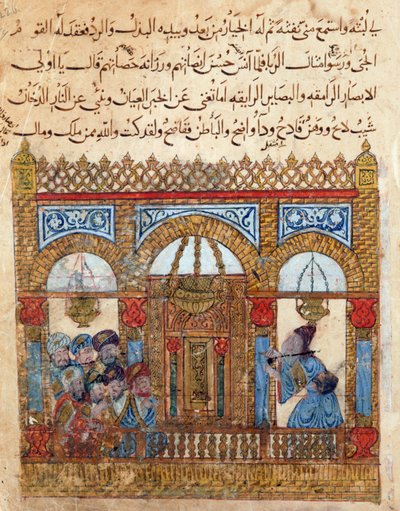 في لبثه واستمع مني نفثه ثم له الخيار من بعد وبيده البذل والرد فعقد له القوم
الحبى ورسوا امثال الربا فلما آنس حسن انصاتهم ورزانه حصاتهم قال يا اولي
الابصار الرامقه والبصاير الرايقه اما تغني عن الخبر العيان وينبي عن النار الدخان
شيب لاح ووهن فادح وداء واضح والباطن فاضح ولقد كنت والله ممن ملك ومال